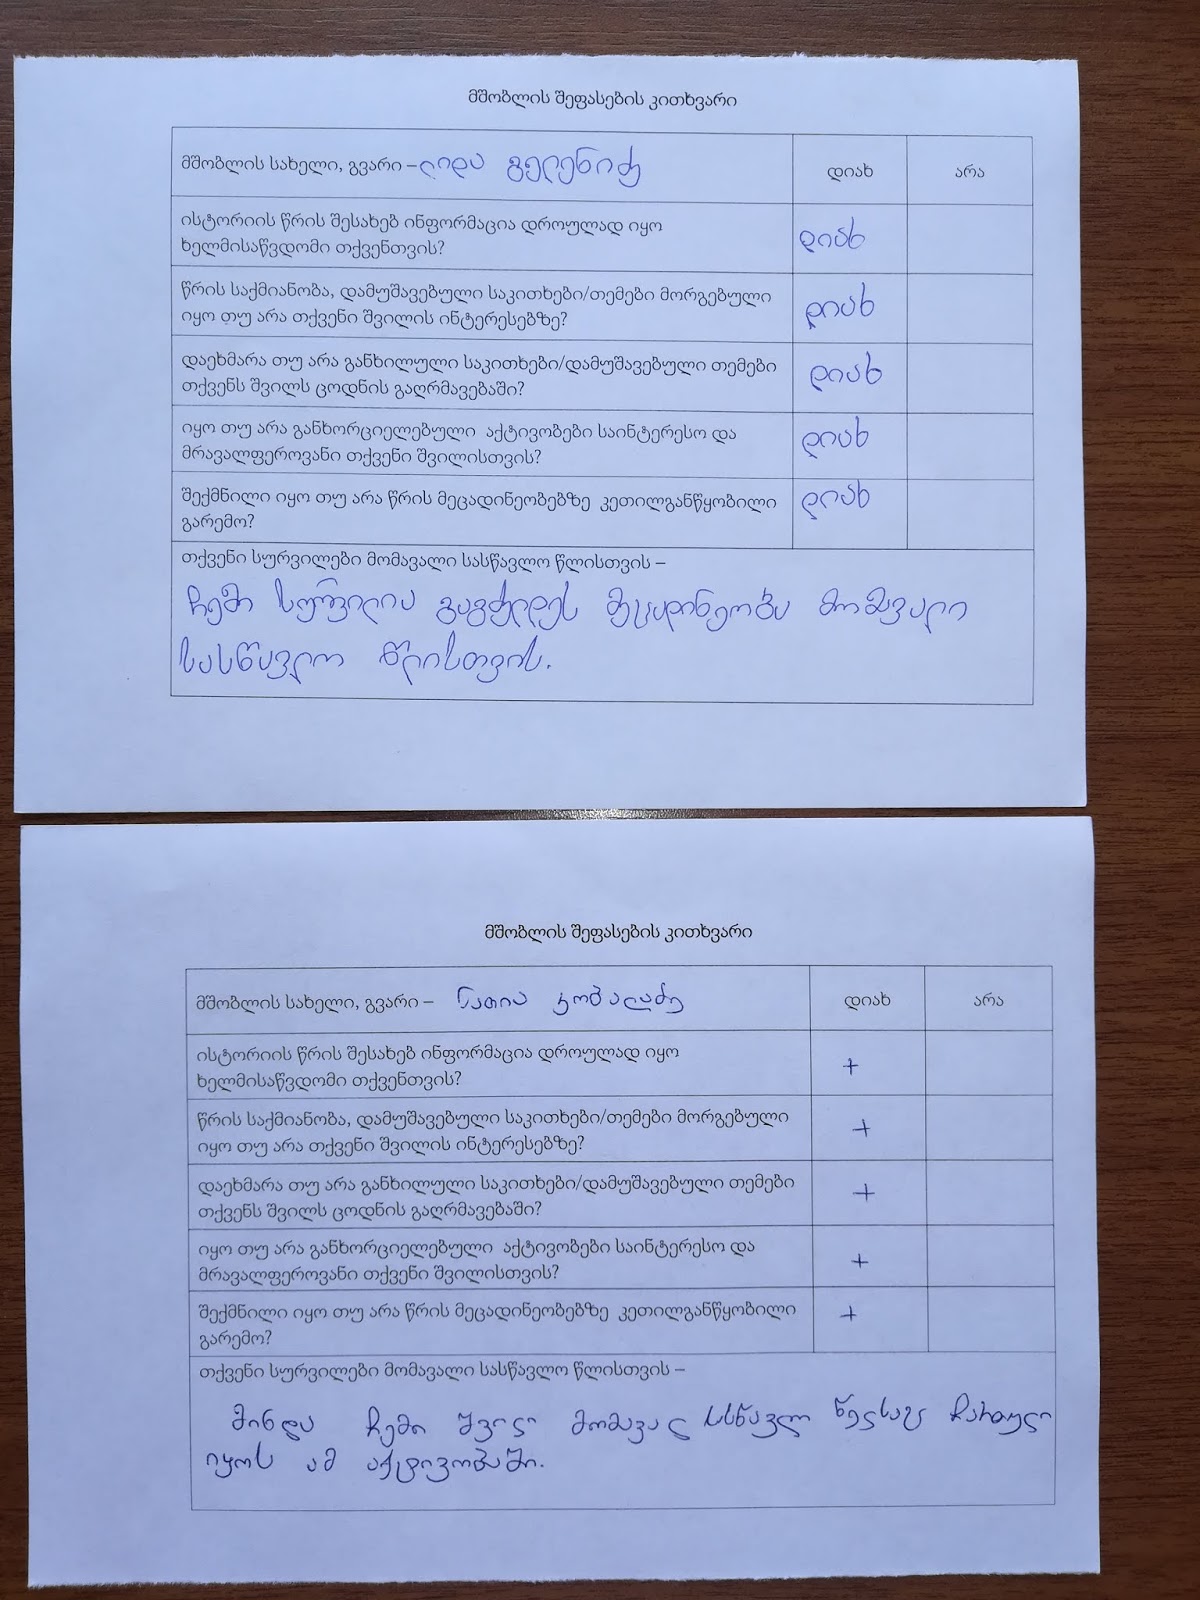 მშობლის შეფასების კითხვარი
მშობლის სახელი, გვარი – ლიდა გელენიძე დიახ არა
ისტორიის წრის შესახებ ინფორმაცია დროულად იყო
ხელმისაწვდომი თქვენთვის? დიახ
წრის საქმიანობა, დამუშავებული საკითხები/თემები მორგებული
იყო თუ არა თქვენი შვილის ინტერესებზე? დიახ
დაეხმარა თუ არა განხილული საკითხები/დამუშავებული თემები
თქვენს შვილს ცოდნის გაღრმავებაში? დიახ
იყო თუ არა განხორციელებული აქტივობები საინტერესო და
მრავალფეროვანი თქვენი შვილისთვის? დიახ
შექმნილი იყო თუ არა წრის მეცადინეობებზე კეთილგანწყობილი
გარემო? დიახ
თქვენი სურვილები მომავალი სასწავლო წლისთვის –
ჩემი სურვილია გაგრძელდეს მეცადინეობა მომავალი
სასწავლო წლისთვის.
მშობლის შეფასების კითხვარი
მშობლის სახელი, გვარი – ნათია კობალაძე დიახ არა
ისტორიის წრის შესახებ ინფორმაცია დროულად იყო
ხელმისაწვდომი თქვენთვის? +
წრის საქმიანობა, დამუშავებული საკითხები/თემები მორგებული
იყო თუ არა თქვენი შვილის ინტერესებზე? +
დაეხმარა თუ არა განხილული საკითხები/დამუშავებული თემები
თქვენს შვილს ცოდნის გაღრმავებაში? +
იყო თუ არა განხორციელებული აქტივობები საინტერესო და
მრავალფეროვანი თქვენი შვილისთვის? +
შექმნილი იყო თუ არა წრის მეცადინეობებზე კეთილგანწყობილი
გარემო? +
თქვენი სურვილები მომავალი სასწავლო წლისთვის –
მინდა ჩემი შვილი მომავალ სასწავლ წელსაც ჩართული
იყოს ამ აქტივობაში.